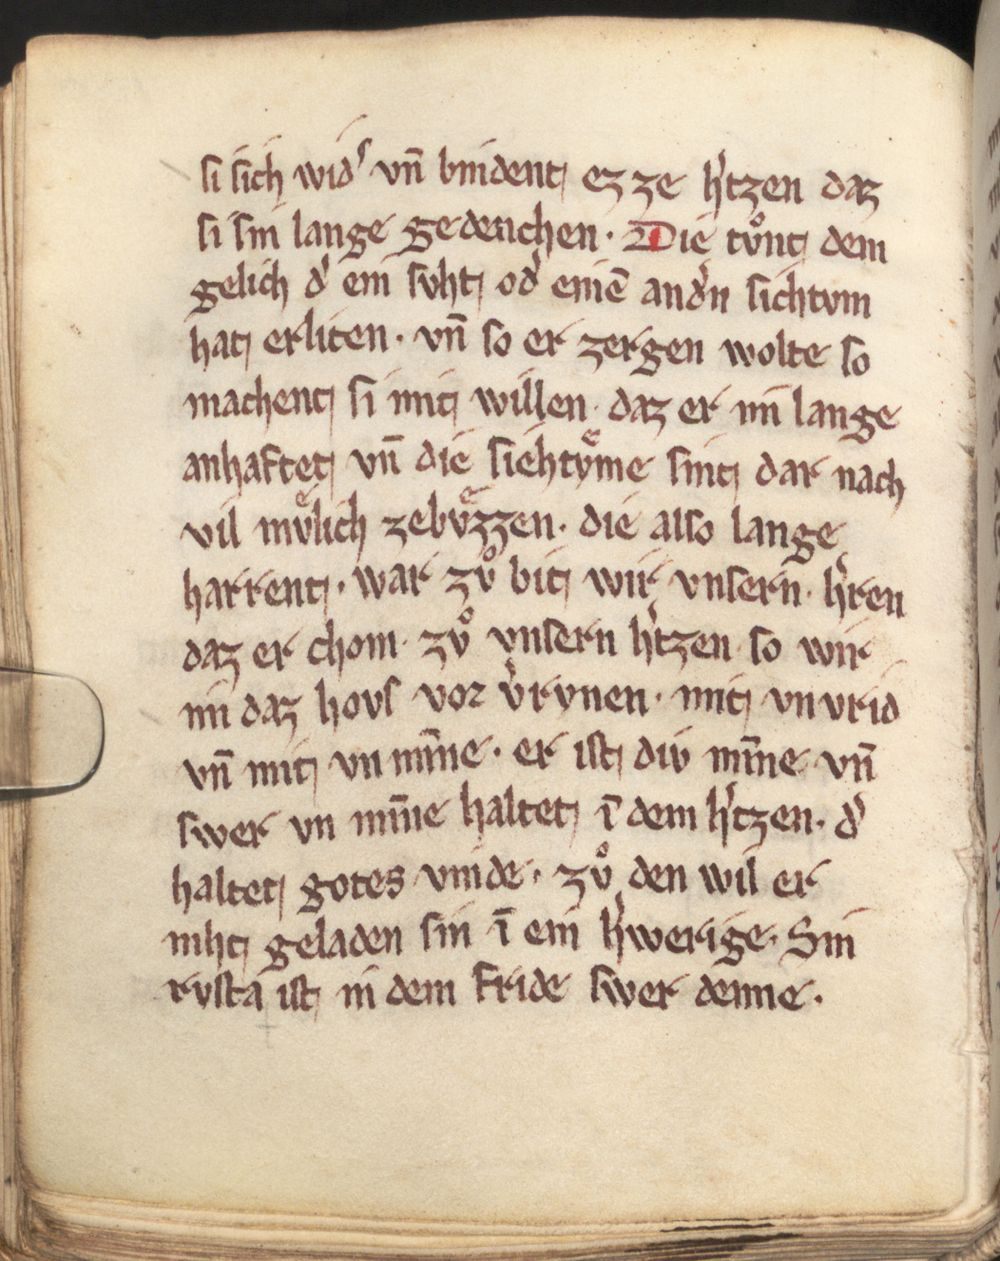 si sich wid᾽ vn̄ bindent ez ze h᾽tzen daz
si sin lange gedenchen · Die tvͦnt dem
gelich d᾽ ein svht od᾽ einē and᾽n sichtvm
hat erliten · vn̄ so er zergen wolte so
machent si mit willen · daz er im lange
anhaftet vn̄ die siehtvͤme sint dar nach
vil mvͤlich zebvͤzzen · die also lange
harrent · war zvͦ bit wir vnsern · h᾽ren
daz er chom · zvͦ vnsern h᾽tzen so wir
im daz hovs vor v᾽rvnen · mit vnvrid
vn̄ mit vn min̄e · er ist div min̄e vn̄
swer vn min̄e haltet ī dem h᾽tzen · d᾽
haltet gotes vinde · zvͦ den wil er
niht geladen sin ī ein h᾽werige · Sin
rvsta ist in dem fride swer denne ·